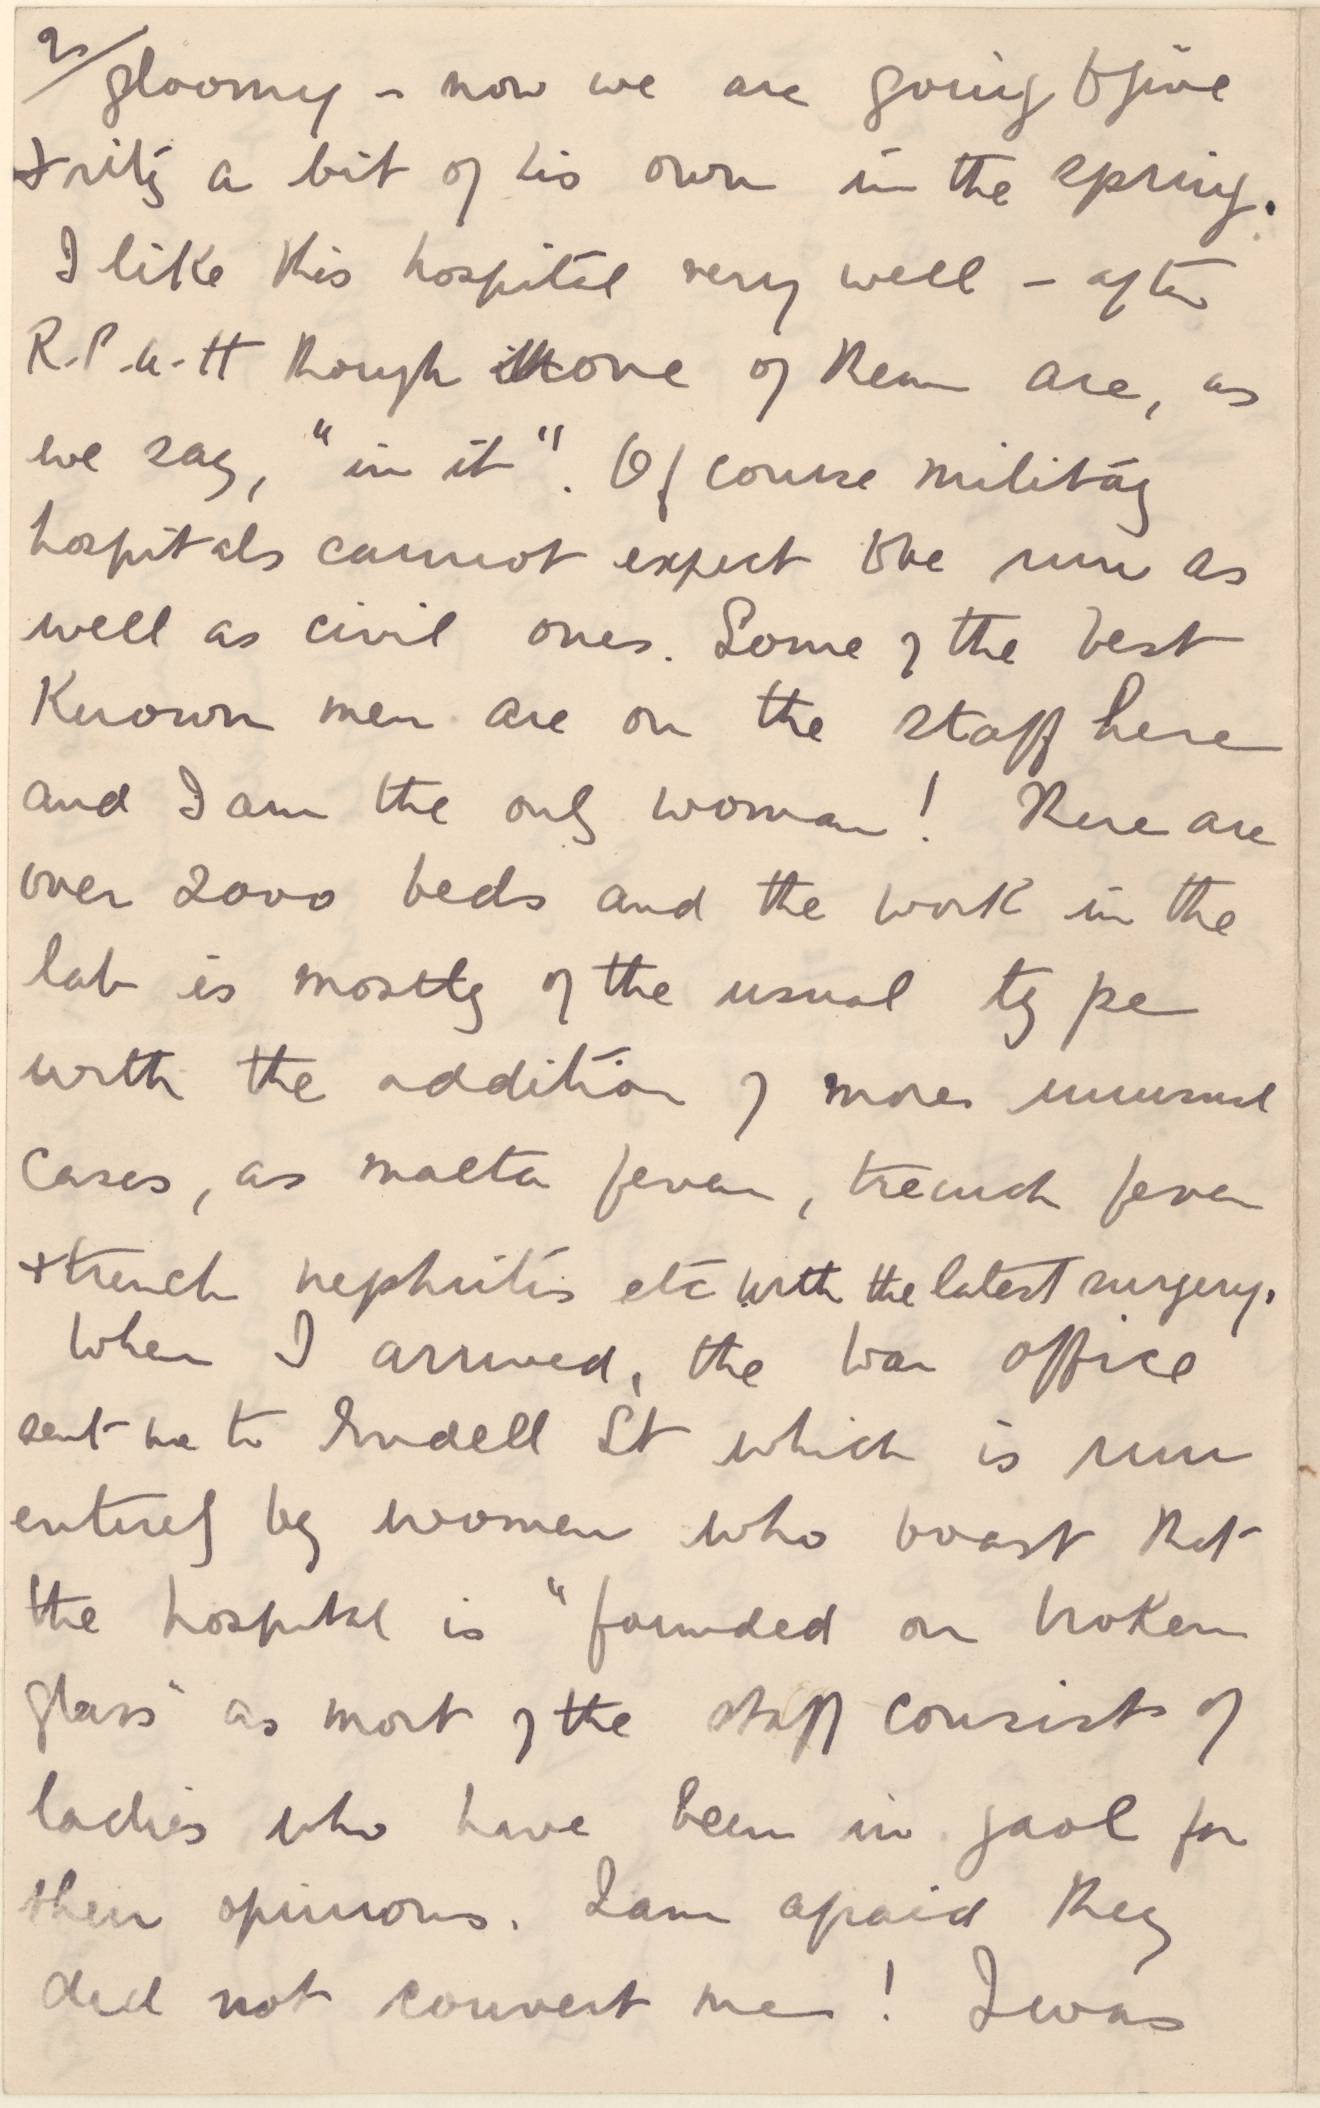 2/ gloomy - now we are going to give
Fritz a bit of his own in the spring.
I like this hospital very well - after
R.P.A.H though none of them are, as
we say, "in it". Of course military
hospitals cannot expect to be run as
well as civil ones. Some of the best
Known men are on the staff here
and I am the only woman! There are
over 2000 beds and the work in the
lab is mostly of the usual type
with the addition of more unusual
cases, as malta fever, trench fever
+ trench nephritis etc with the latest surgery.
When I arrived, the War Office
sent me to Endell St which is run
entirely by women who boast that
the hospital is "founded on broken
glass" as most of the staff consists of
ladies who have been in gaol for
their opinions. I am afraid they
did not convert me! I was